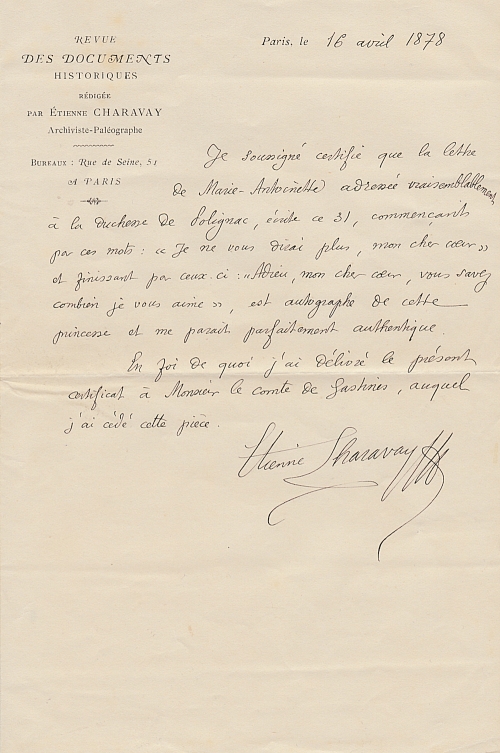 REVUE
DES DOCUMENTS
HISTORIQUES
RÉDIGÉE
PAR ÉTIENNE CHARAVAY
Archiviste-Paléographe
BUREAUX : Rue de Seine, 51
A PARIS
Paris, le 16 avril 1878
Je soussigné certifie que la lettre
de Marie-Antoinette adressée vraisemblablement
à la duchesse de Polignac, écrite ce 31, commençant
par ces mots : « Je ne vous dirai plus, mon cher cœur »
et finissant par ceux-ci : « Adieu, mon cher cœur, vous savez
combien je vous aime », est autographe de cette
princesse et me parait parfaitement authentique.
En foi de quoi j'ai délivré le présent
certificat à Monsieur le comte de, auquel
j'ai cédé cette pièce.
Etienne Charavay